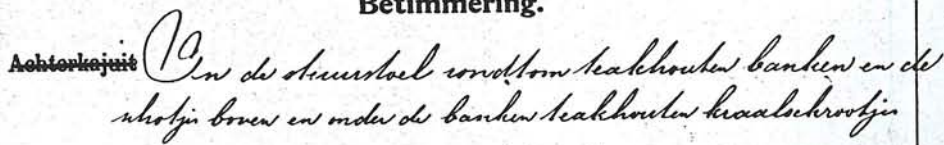 Betimmering.
Achterkajuit In de stuurstoel rondtom teakhouten banken en de
schotjes boven en onder de banken teakhouten kraalschrootjes